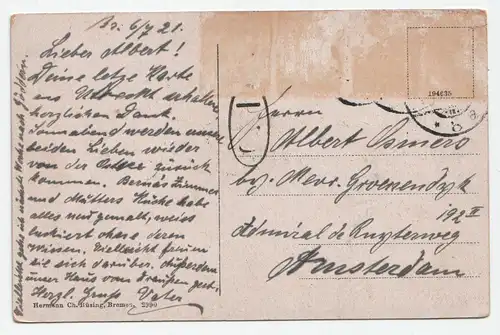 Br. 6/7 21.
Lieber Albert!
Deine letze Karte
aus Utrecht erhalten,
herzlichen Dank.
Sonnabend werden unsere
beiden Lieben wieder
von der Ostsee zurück
kommen. Bernds Zimmer
und Mutters Küche habe
alles neu gemalt, weiss
lackiert ohne deren
Wissen. Vielleicht freuen
sie sich darüber. Außerdem
unser Haus von draußen
Herzl. Gruß Vater
Vielleicht gehe ich nächste Woche nach
Hermann Ch. Büsing, Bremen. 2990
194635
Herrn
Albert Osmers
by Mevr. Groenendyk
192 II
Admiral de Ruyterweg
Amsterdam